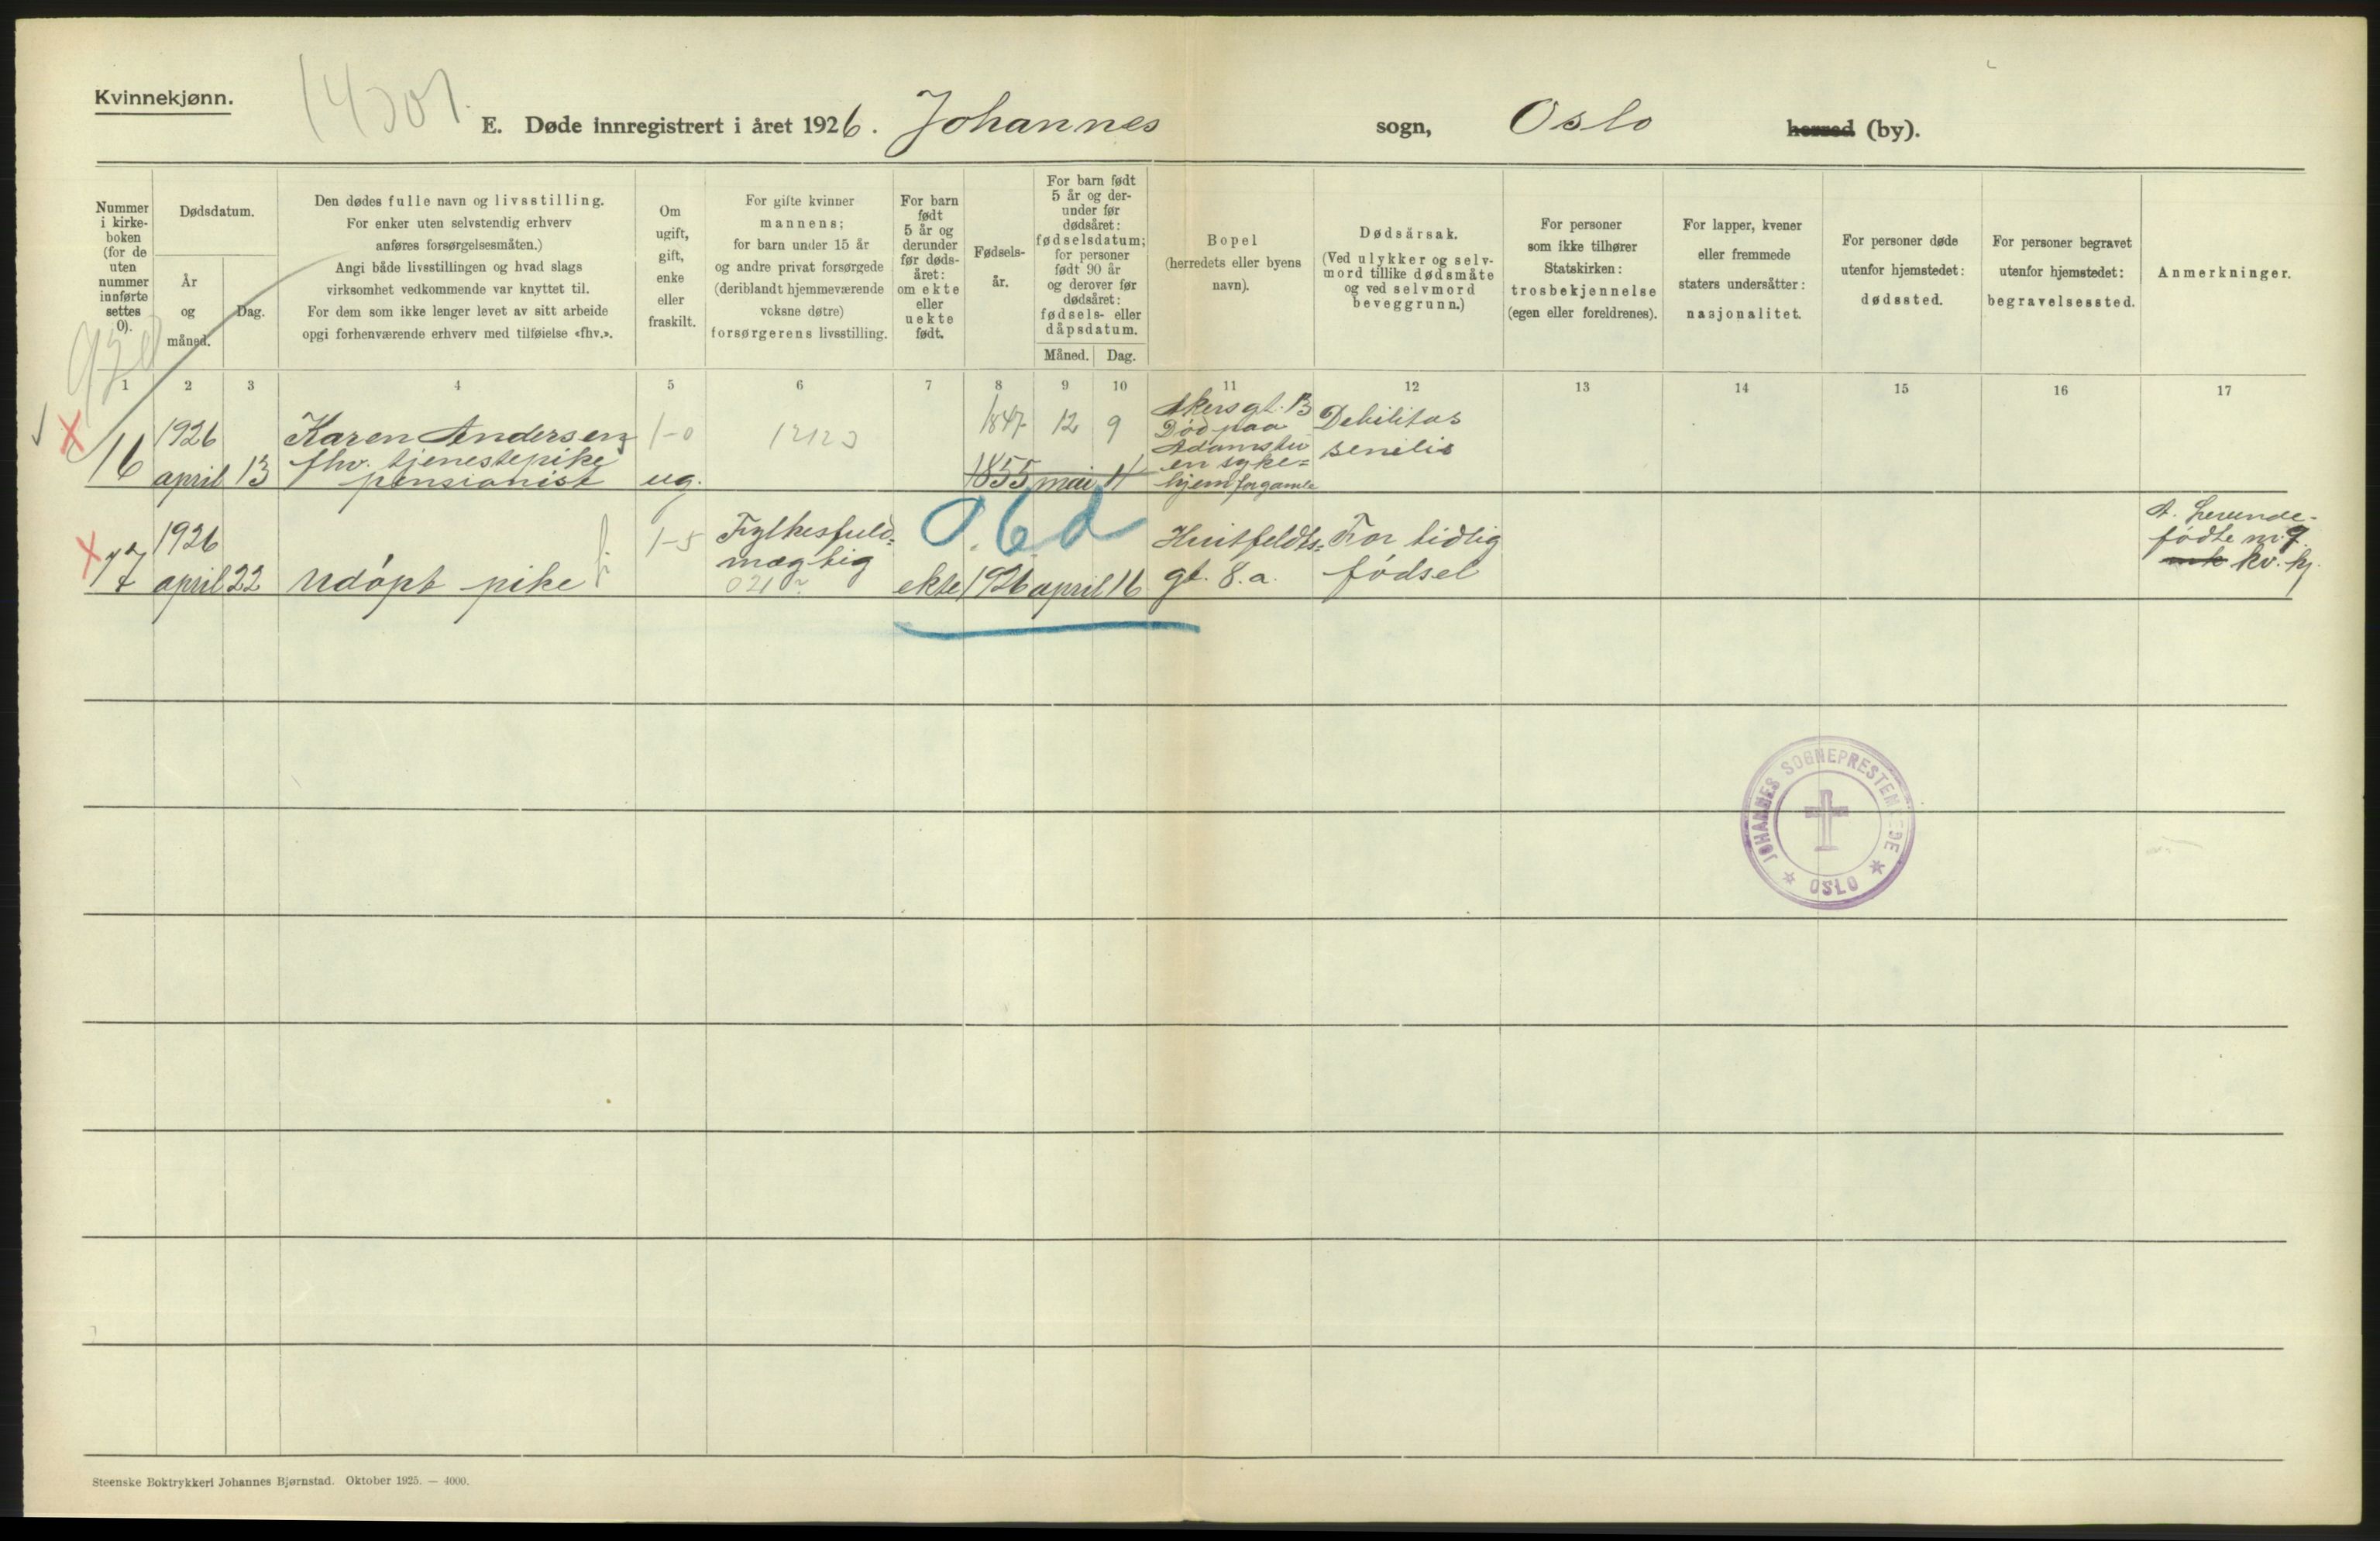 Kvinnekjønn.
E. Døde innregistrert i året 1926. Johannes sogn, Oslo herred (by).
Nummer i kirke-
boken
(for de
uten
nummer
innførte
settes
0).
Dødsdatum.
År
og
måned.
Dag.
Den dødes fulle navn og livsstilling.
For enker uten selvstendig erhverv
anføres forsørgelsesmåten.)
Angi både livsstillingen og hvad slags
virksomhet vedkommende var knyttet til.
For dem som ikke lenger levet av sitt arbeide
opgi forhenværende erhverv med tilføielse «fhv.».
Om
ugift,
gift,
enke
eller
fraskilt.
For gifte kvinner
mannens;
for barn under 15 år
og andre privat forsørgede
(deriblandt hjemmeværende
voksne døtre)
forsørgerens livsstilling.
For barn
født
5 år og
derunder
før døds-
året:
om ekte
eller
uekte
født.
Fødsels-
år.
For barn født
5 år og der-
under før
dødsåret:
fødselsdatum;
for personer
født 90 år
og derover før
dødsåret:
fødsels- eller
dåpsdatum.
Måned. Dag.
Bopel
(herredets eller byens
navn).
Dødsårsak.
(Ved ulykker og selv-
mord tillike dødsmåte
og ved selvmord
beveggrunn.)
For personer
som ikke tilhører
Statskirken:
trosbekjennelse
(egen eller foreldrenes).
For lapper, kvener
eller fremmede
staters undersåtter:
nasjonalitet.
For personer døde
utenfor hjemstedet:
dødssted.
For personer begravet
utenfor hjemstedet:
begravelsessted.
Anmerkninger.
1 2 3 4 5 6 7 8 9 10 11 12 13 14 15 16 17
16
1926
april 13
Karen Andersen
fhv. tjenestepike
pensionist
1-0
ug.
1847 12 9
1855 mai 11
Akersgt. 13
Död paa
Adamstu
en syke=
hjem for gamle
Debilitas
senilis
17
1926
april 22
Udöpt pike
1-5
Fylkesfuld=
mægtig
ekte 1926 april 16
Huitfeldts=
gt. 8. a.
For tidlig
födsel
A. Levende-
födte nr. 9
kv. kj.
JOHANNES SOGNEPRESTEMBEDE
OSLO
Steenske Boktrykkeri Johannes Bjørnstad. Oktober 1925. — 4000.